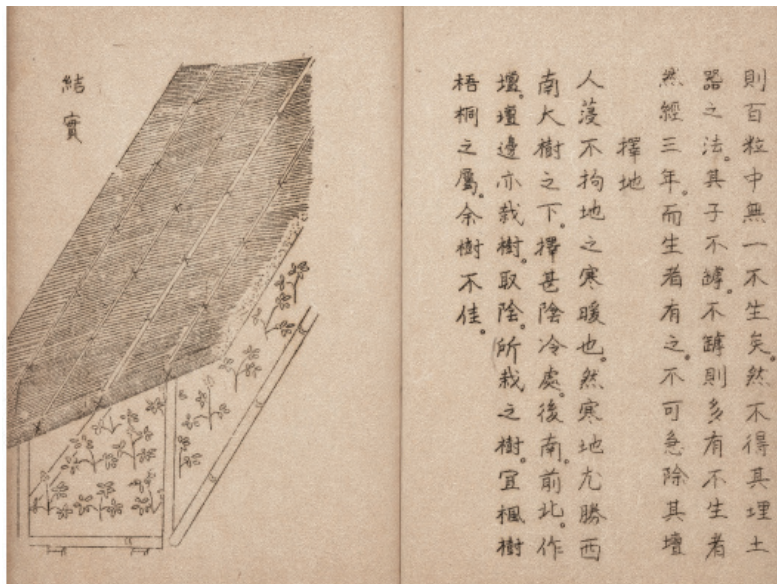 則百粒中無一不生矣。然不得其埋土
器之法。其子不罅。不罅則多有不生者
然經三年。而生者有之。不可急除其壇
擇地
人蓡不拘地之寒暖也。然寒地尤勝西
南大樹之下。擇甚陰冷處。後南。前北。作
壇。壇邊亦栽樹。取陰。所栽之樹。宜楓樹
梧桐之屬。余樹不佳。
結實